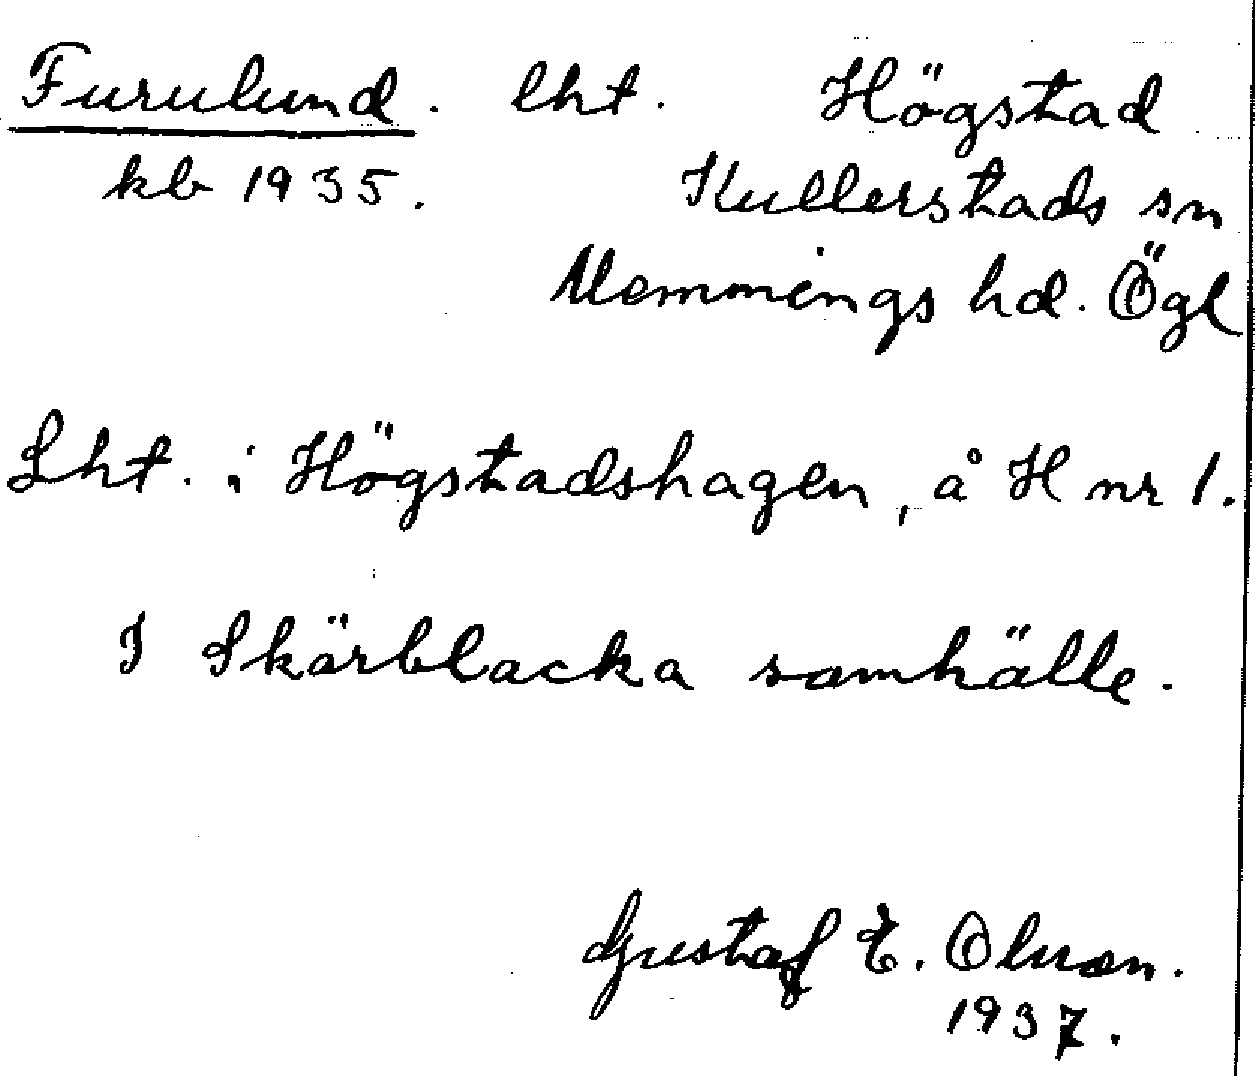 Furulund. lht. Högstad
kb 1935. Kullerstads sn
Memmings hd. Ögl
Lht. i Högstadshagen, å H nr 1.
I Skärblacka samhälle.
Gustaf E. Olsson.
1937.